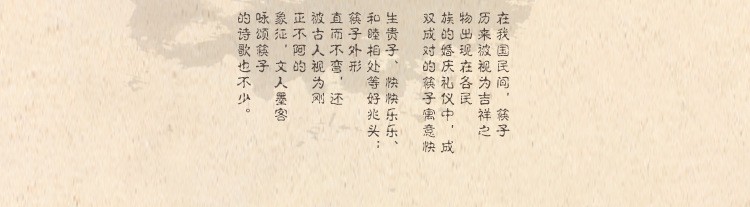 在我国民间，筷子
历来被视为吉祥之
物出现在各民
族的婚庆礼仪中，成
双成对的筷子寓意快
生贵子、快快乐乐、
和睦相处等好兆头；
筷子外形
直而不弯，还
被古人视为刚
正不阿的
象征，文人墨客
咏颂筷子
的诗歌也不少。